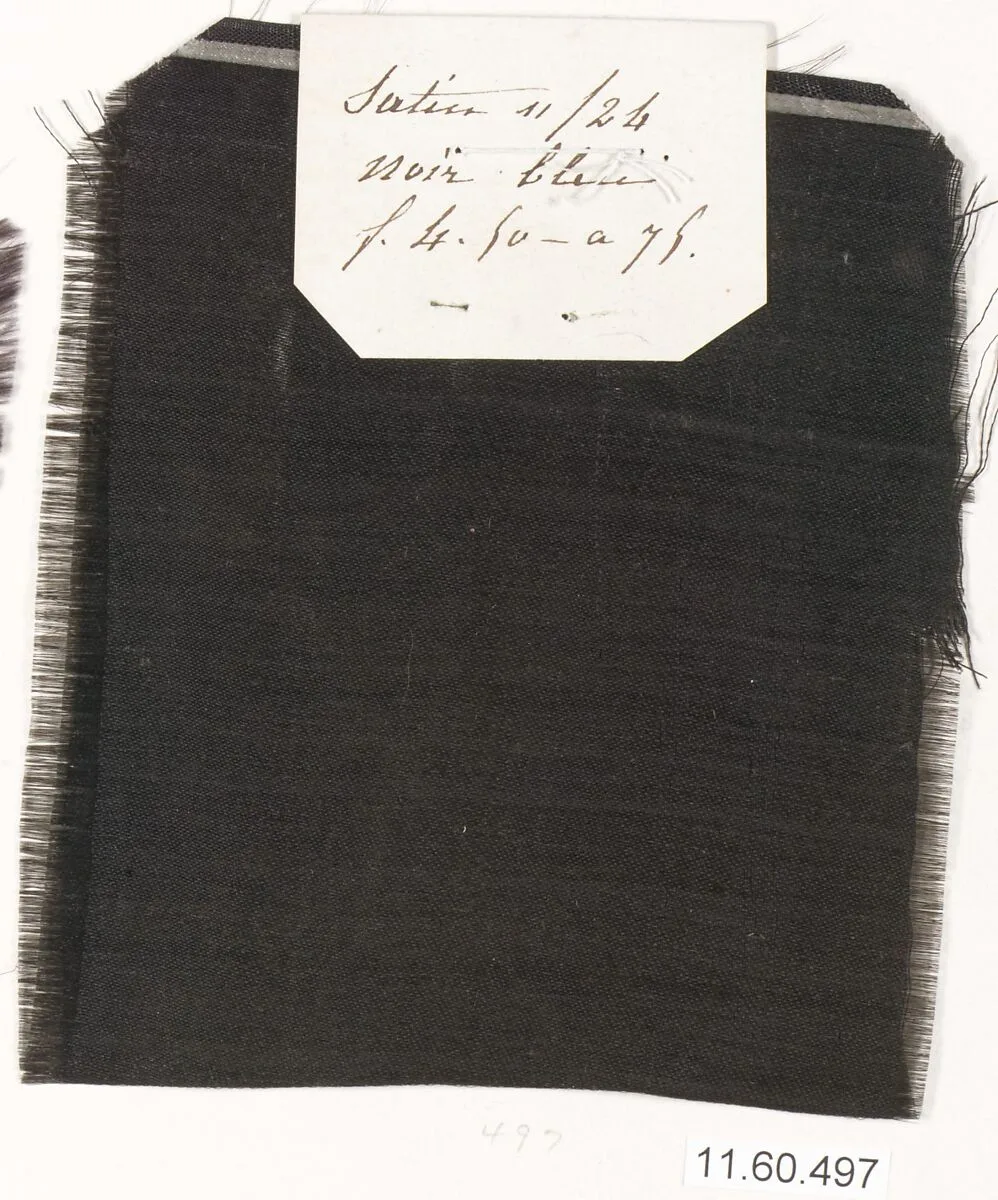 Satin 11/24
noir bleu
f. 4. 50 – a 75.
497
11.60.497